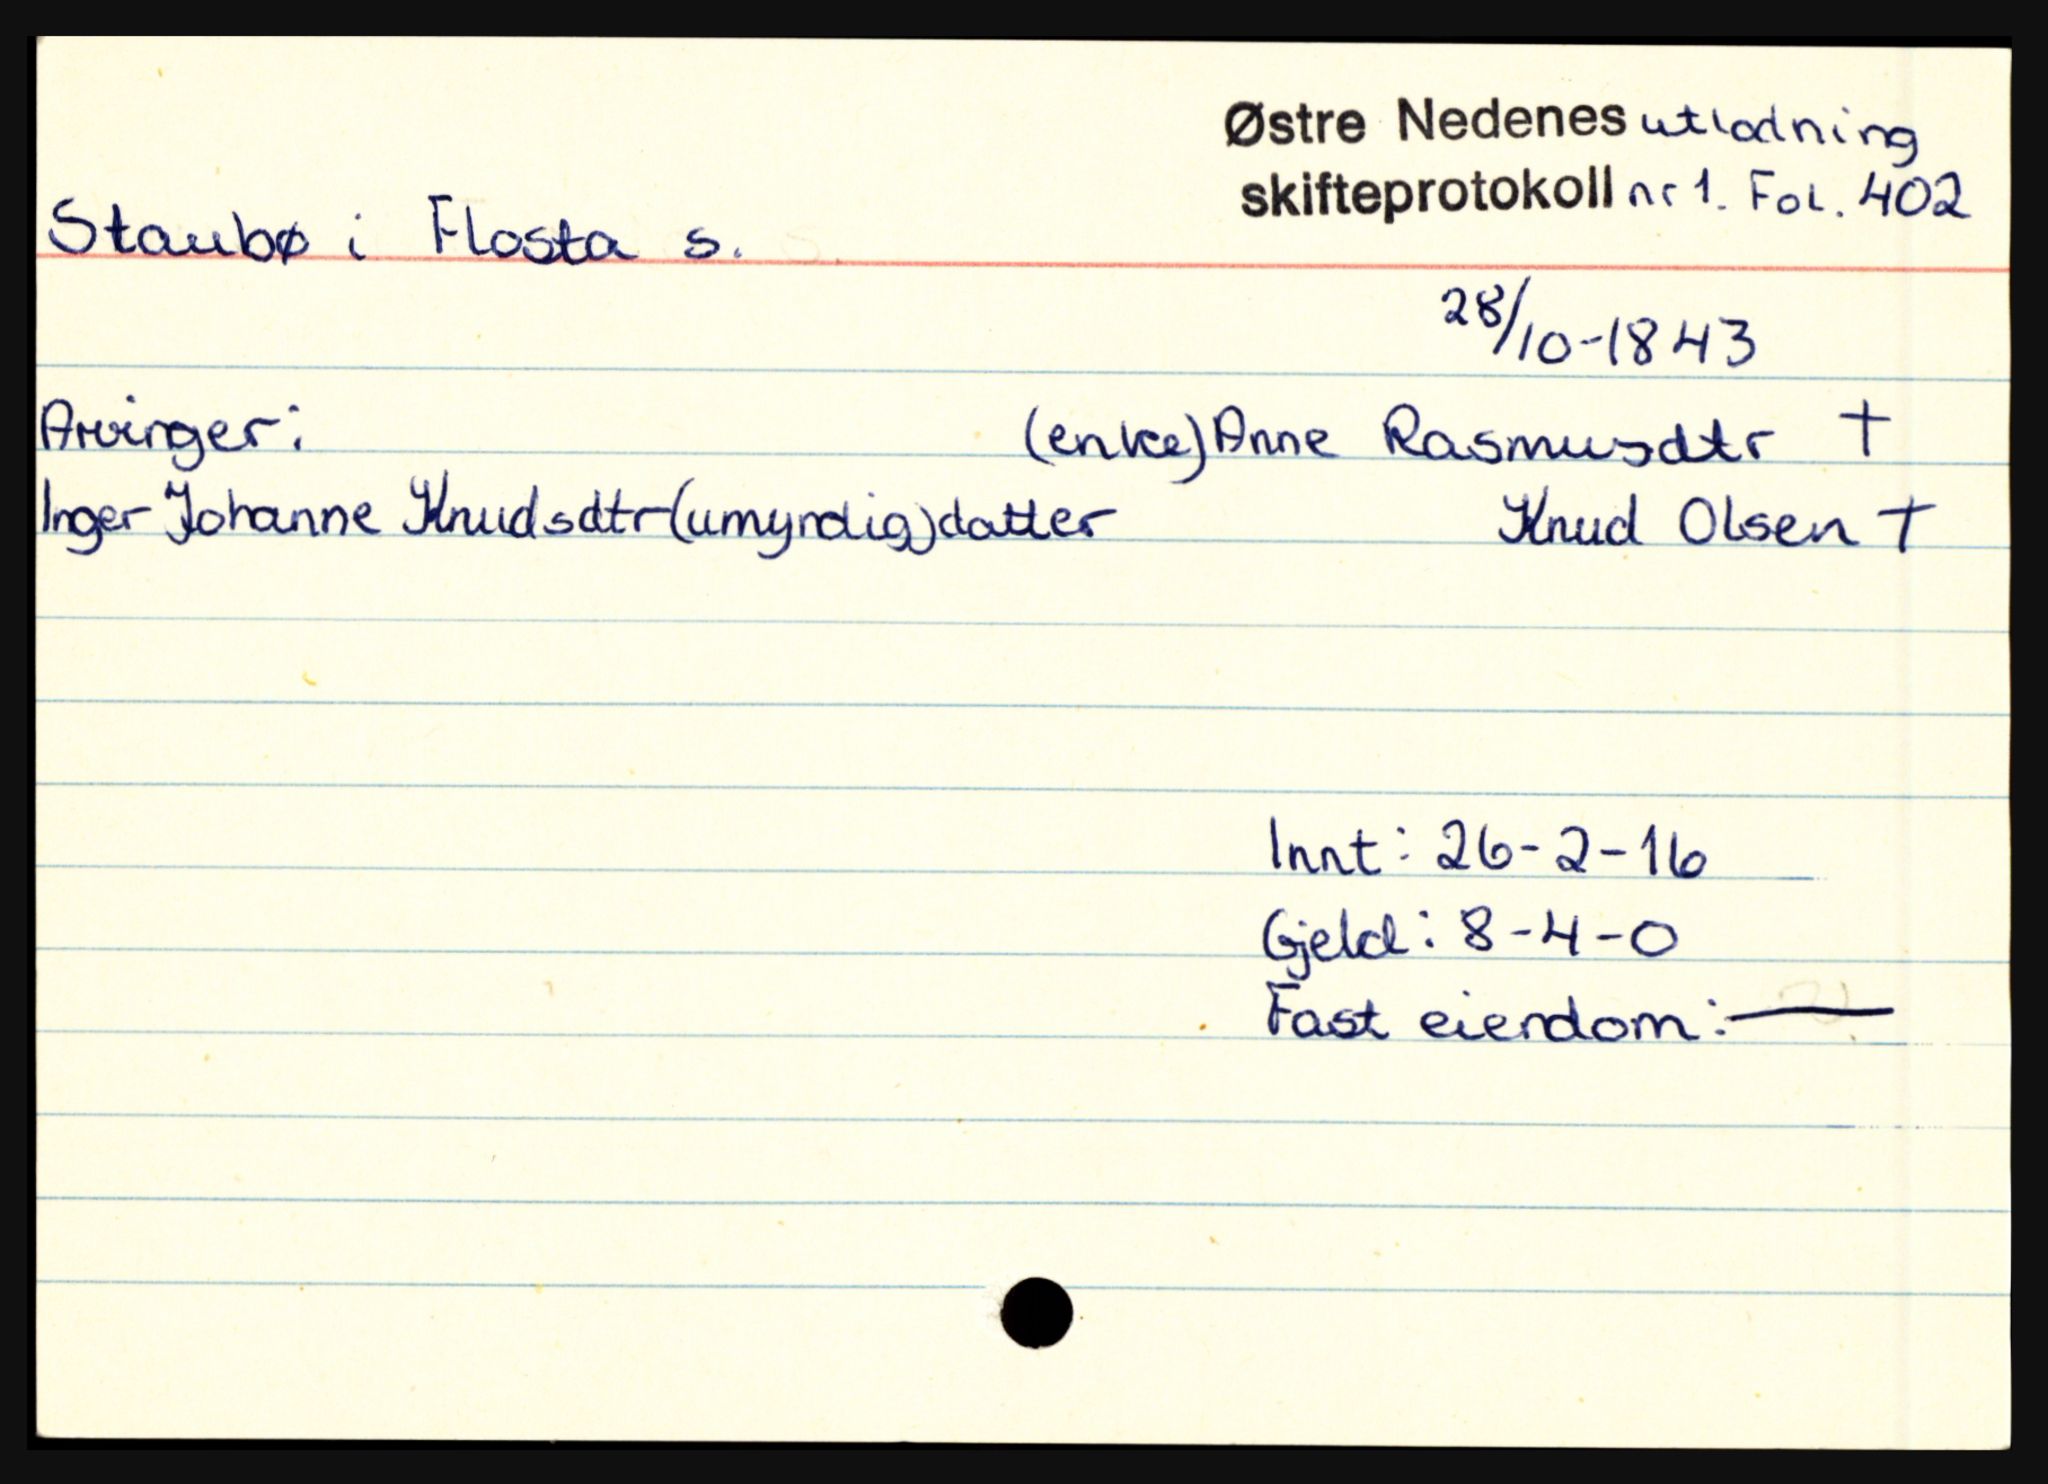 Østre Nedenes utlodning
skifteprotokoll nr 1. Fol. 402
Staubø i Flosta s.
28/10-1843
Arvinger: (enke) Anne Rasmusdtr †
Inger Johanne Knudsdtr (umyndig) datter Knud Olsen †
Innt: 26-2-16
Gjeld: 8-4-0
Fast eiendom: —